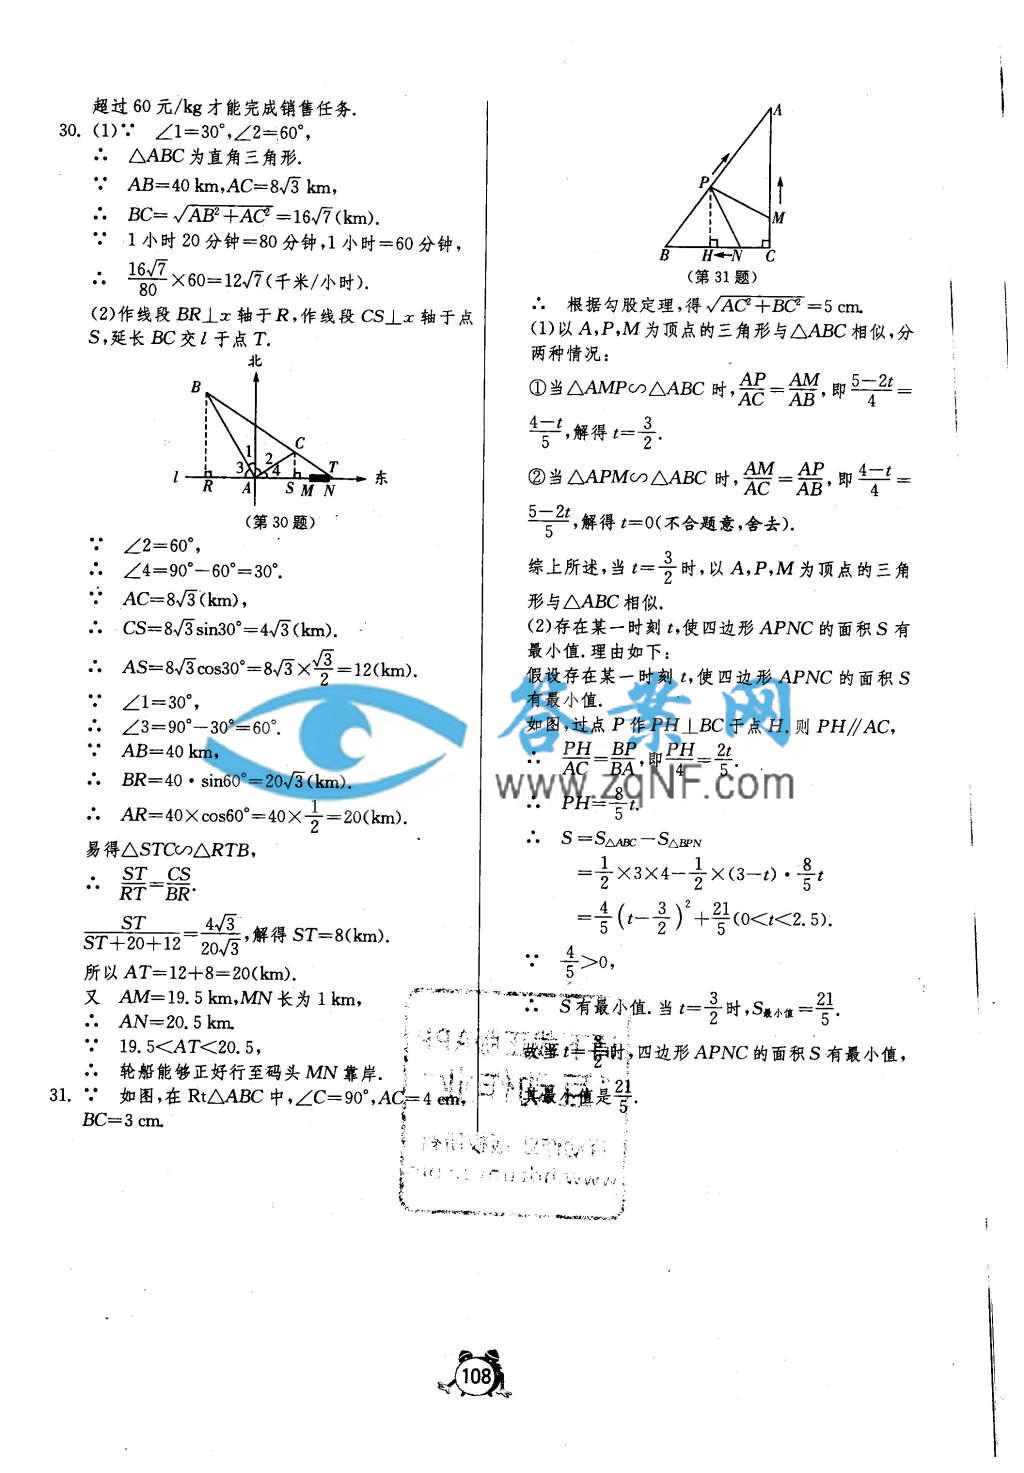 超过60元/kg才能完成销售任务.
30. (1)∵ ∠1=30°,∠2=60°,
∴ △ABC为直角三角形.
∵ AB=40 km,AC=8√3 km,
∴ BC=√(AB²+AC²)=16√7(km).
∵ 1小时20分钟=80分钟,1小时=60分钟,
∴ 16√7/80×60=12√7(千米/小时).
(2)作线段BR⊥x轴于R,作线段CS⊥x轴于点
S,延长BC交l于点T.
北
B
C
1
2
3
4
T
l
R
A
S
M
N
东
(第30题)
∵ ∠2=60°,
∴ ∠4=90°-60°=30°.
∵ AC=8√3(km),
∴ CS=8√3sin30°=4√3(km).
∴ AS=8√3cos30°=8√3×√3/2=12(km).
∵ ∠1=30°,
∴ ∠3=90°-30°=60°.
∵ AB=40 km,
∴ BR=40·sin60°=20√3(km).
∴ AR=40×cos60°=40×1/2=20(km).
易得△STC∽△RTB,
∴ ST/RT=CS/BR.
ST/(ST+20+12)=4√3/20√3,解得ST=8(km).
所以AT=12+8=20(km).
又 AM=19.5 km,MN长为1 km,
∴ AN=20.5 km.
∵ 19.5<AT<20.5,
∴ 轮船能够正好行至码头MN靠岸.
31. ∵ 如图,在Rt△ABC中,∠C=90°,AC=4 cm,
BC=3 cm.
A
P
M
B
H
N
C
(第31题)
∴ 根据勾股定理,得√(AC²+BC²)=5 cm.
(1)以A,P,M为顶点的三角形与△ABC相似,分
两种情况:
①当△AMP∽△ABC时,AP/AC=AM/AB,即(5-2t)/4=
(4-t)/5,解得t=3/2.
②当△APM∽△ABC时,AM/AC=AP/AB,即(4-t)/4=
(5-2t)/5,解得t=0(不合题意,舍去).
综上所述,当t=3/2时,以A,P,M为顶点的三角
形与△ABC相似.
(2)存在某一时刻t,使四边形APNC的面积S有
最小值.理由如下:
假设存在某一时刻t,使四边形APNC的面积S
有最小值.
如图,过点P作PH⊥BC于点H.则PH∥AC,
∴ PH/AC=BP/BA,即PH/4=2t/5.
∴ PH=8/5t.
∴ S=S△ABC-S△BPN
=1/2×3×4-1/2×(3-t)·8/5t
=4/5(t-3/2)²+21/5(0<t<2.5).
∵ 4/5>0,
∴ S有最小值.当t=3/2时,S最小值=21/5.
故当t=3/2时,四边形APNC的面积S有最小值,
其最小值是21/5.
答案网
www.zqNF.com
108